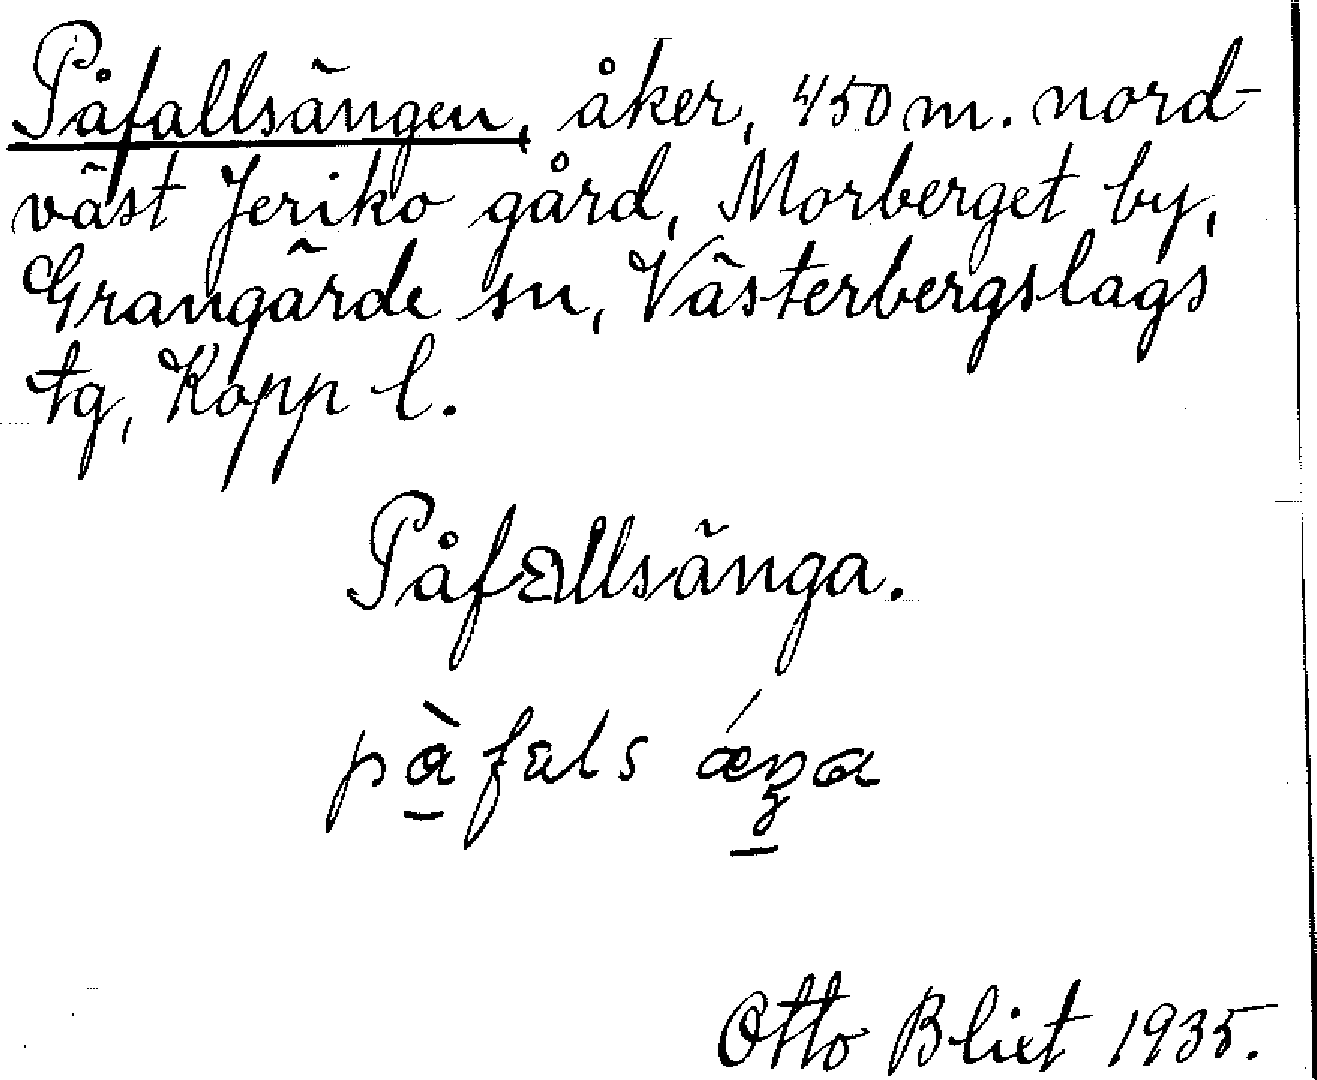 Påfallsängen, åker, 450 m. nord-
väst Jeriko gård, Morberget by,
Grangärde sn, Västerbergslags
tg, Kopp l.
Påfallsänga.
Otto Blixt 1935.